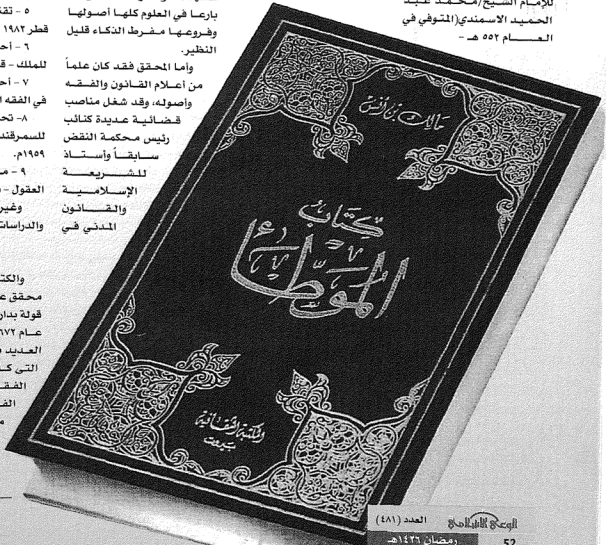 للإمام الشيخ/محمد عبد
الحميد الاسمندي(المتوفي في
العـــام ٥٥٢ هـ -
بارعا في العلوم كلها أصولها
وفروعها مفرط الذكاء قليل
النظير.
وأما المحقق فقد كان علماً
من أعلام القانون والفقه
وأصوله، وقد شغل مناصب
قضائية عديدة كنائب
رئيس محكمة النقض
سابقاً وأستاذ
للشريعة
الإسلامية
والقانون
المدني في
٥ - تقن
قطر ١٩٨٢
٦ - أح
للملك - ق
٧ - أح
في الفقه ا
٨ - تح
للسمرقند
١٩٥٩م.
٩ - م
العقول -
وغير
والدراسات
والكت
محقق ع
قولة بدار
عـام ٦٧٢
العديد
التي كـ
الفقـ
الف
مالك بن أنس
كتاب
الموطأ
المكتبة الثقافية
بيروت
الوعي الإسلامي العدد (٤٨١)
52 رمضان ١٤٢٦هـ